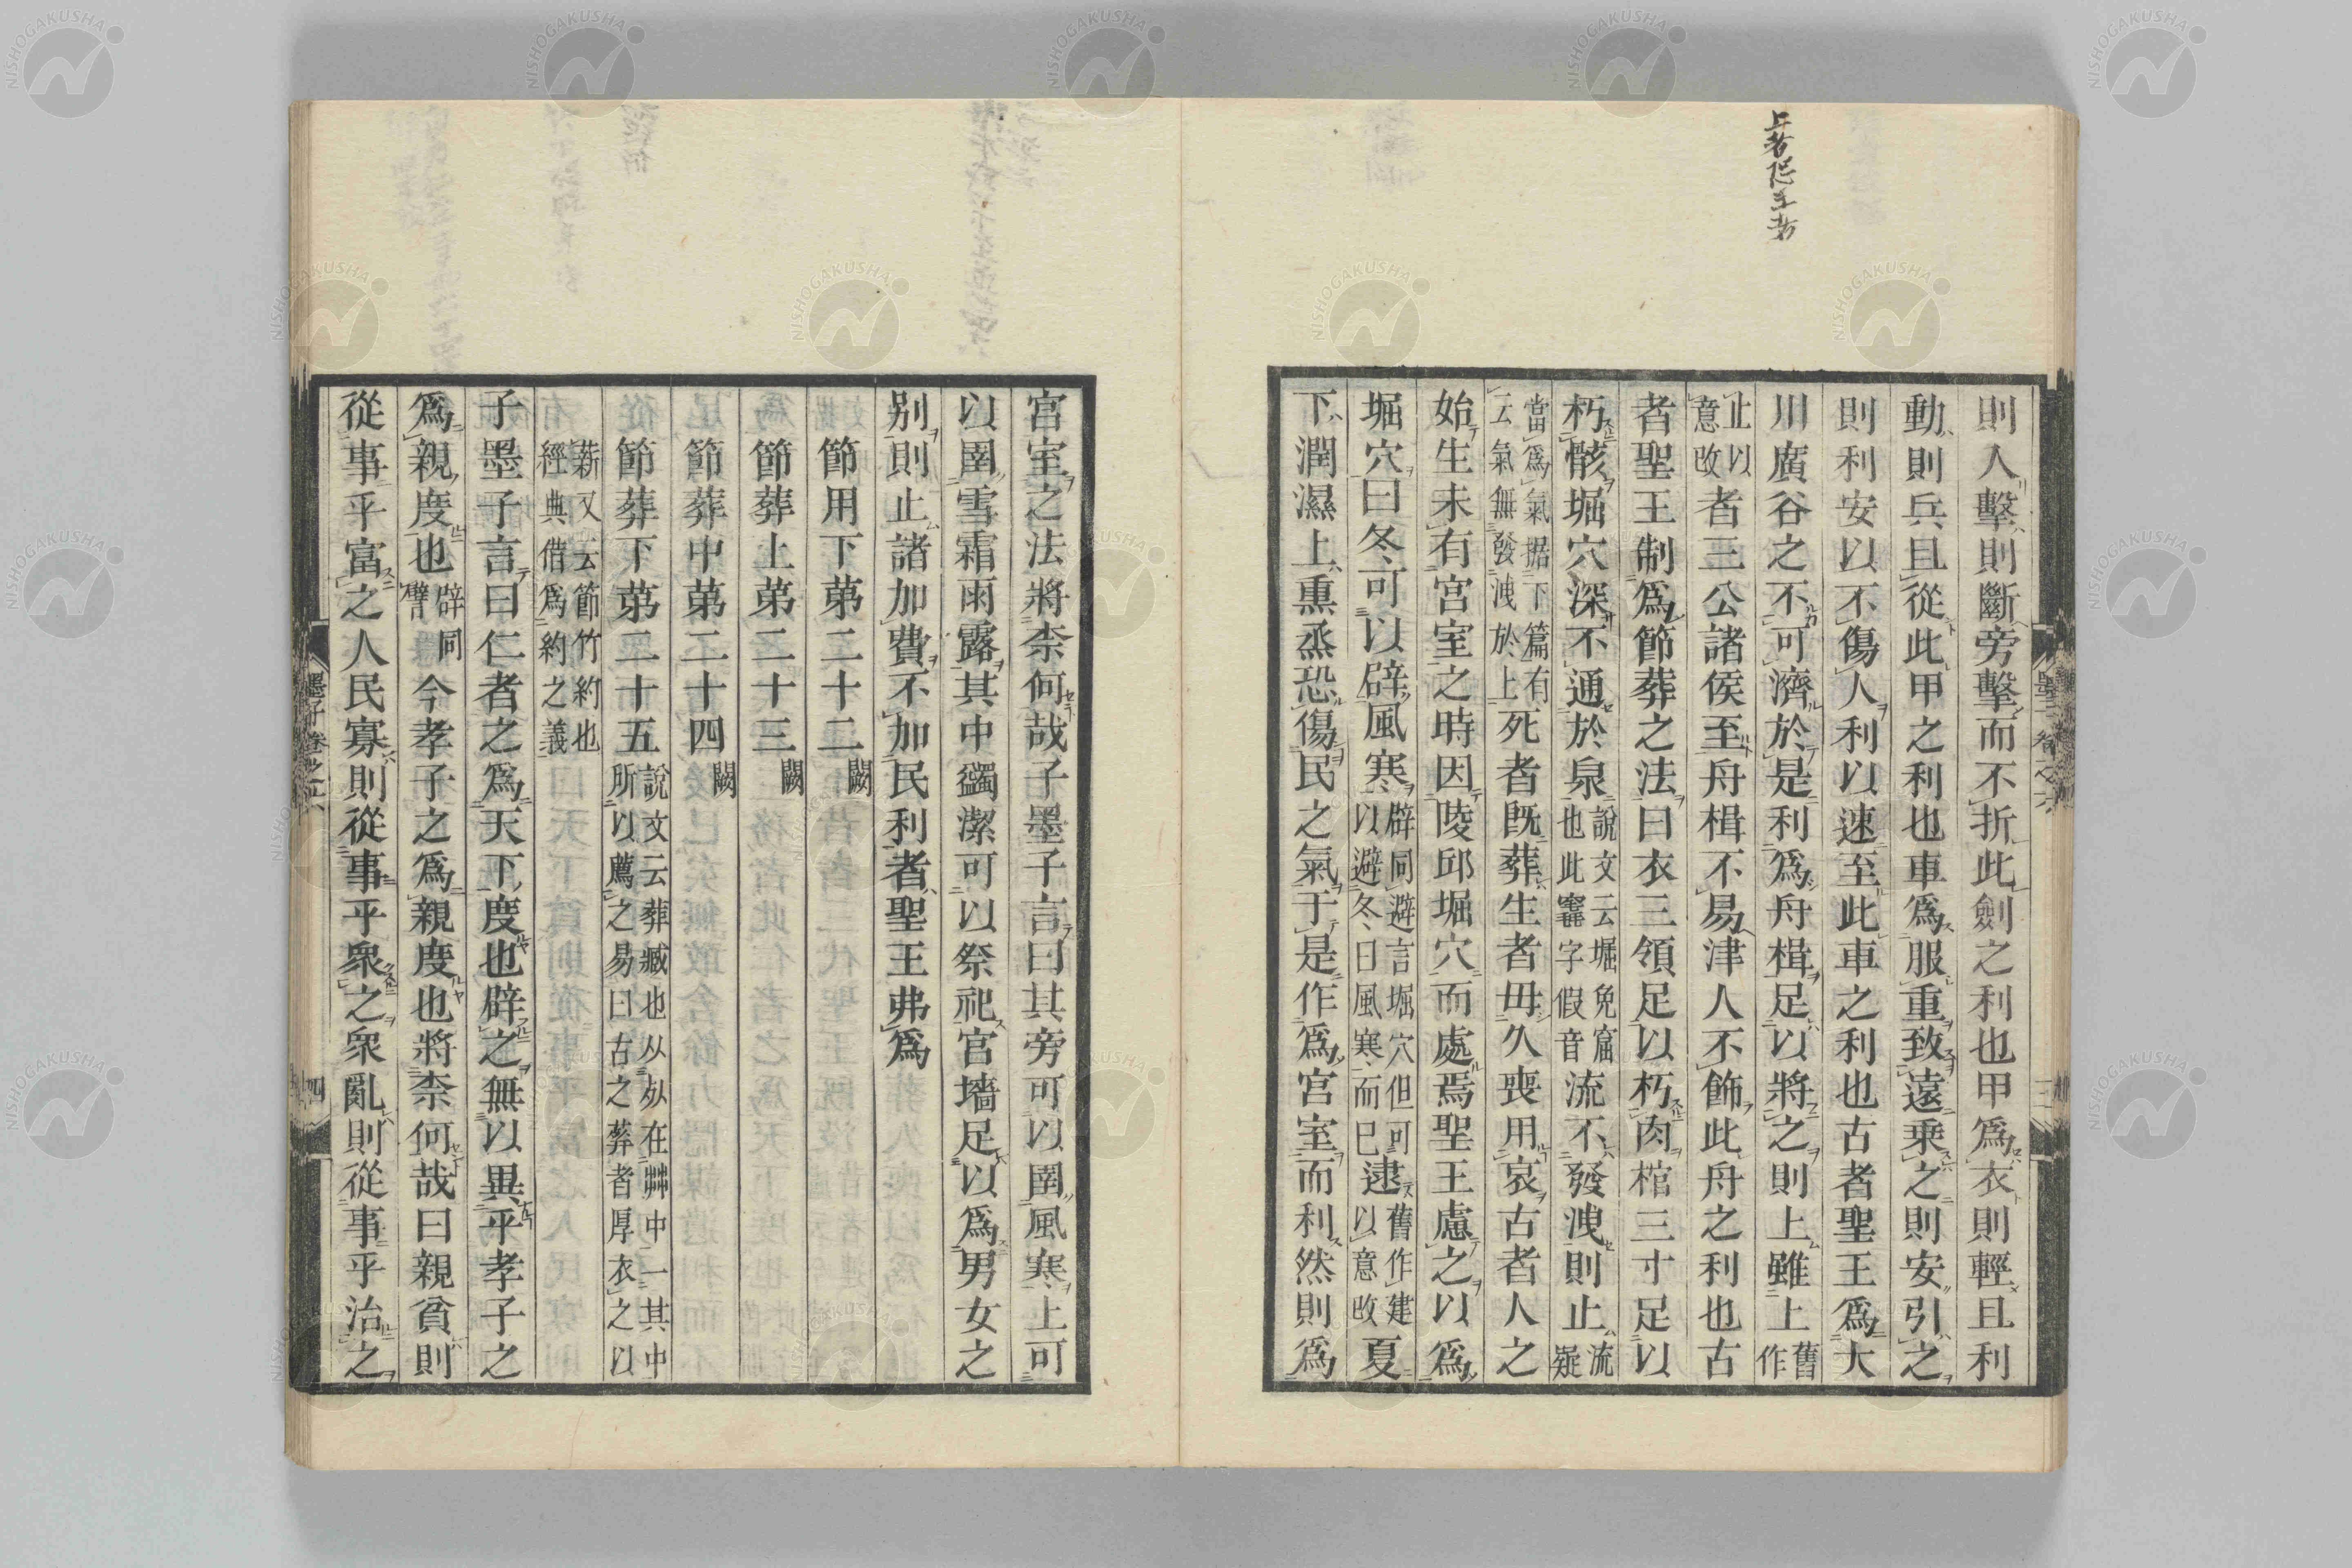 則人擊則斷旁擊而不折此劍之利也甲爲衣則輕且利
動則兵且從此甲之利也車爲服重致遠乗之則安引之
則利安以不傷人利以速至此車之利也古者聖王爲大
川廣谷之不可濟於是利爲舟楫足以將之則上雖上舊作
止以意改者三公諸侯至舟楫不易津人不飾此舟之利也古
者聖王制爲節葬之法曰衣三領足以朽肉棺三寸足以
朽骸堀穴深不通於泉說文云堀兔窟也此竁字假音流不發洩則止流疑
當爲氣據下篇有云氣無發洩於上死者既葬生者毋久喪用哀古者人之
始生未有宮室之時因陵邱堀穴而處焉聖王慮之以爲
堀穴曰冬可以辟風寒辟同避言堀穴但可以避冬日風寒而已逮舊作建以意改夏
下潤濕上熏烝恐傷民之氣于是作爲宮室而利然則爲
宮室之法將柰何哉子墨子言曰其旁可以圉風寒上可
以圉雪霜雨露其中蠲潔可以祭祀宮墻足以爲男女之
別則止諸加費不加民利者聖王弗爲
節用下苐二十二闕
節葬上苐二十三闕
節葬中苐二十四闕
節葬下苐二十五說文云葬臧也从死在茻中一其中所以薦之易曰古之葬者厚衣之以
薪又云節竹約也經典借爲約之義
子墨子言曰仁者之爲天下度也辟之無以異乎孝子之
爲親度也辟同譬今孝子之爲親度也將柰何哉曰親貧則
從事乎富之人民寡則從事乎衆之衆亂則從事乎治之
墨子卷之六
四